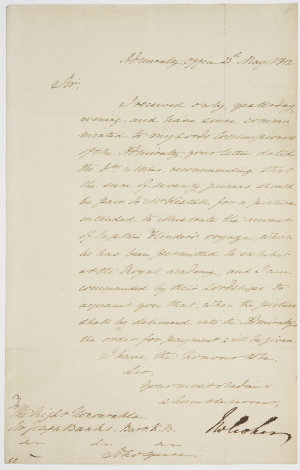 Admiralty Office 23d May, 1812
Sir,
I received only yesterday
evening and have since commu-
nicated to my Lords Commissioners
of the Admiralty your letter dated
the recommending that
the sum of seventy guineas should
be paid to Mr Westall for a picture
intended to illustrate the account
of Captain Flinders's voyage, which
he has been permitted to exhibit
at the Royal academy; and I am
commanded by their Lordships to
acquaint you that, when the picture
shall be delivered into the Admiralty
the order for payment will be given.
I have the Honour to be,
Sir,
Your most obedient
humble servant,
The Right Honourable
Sir Joseph Banks - Bart. K.B.
Soho Square